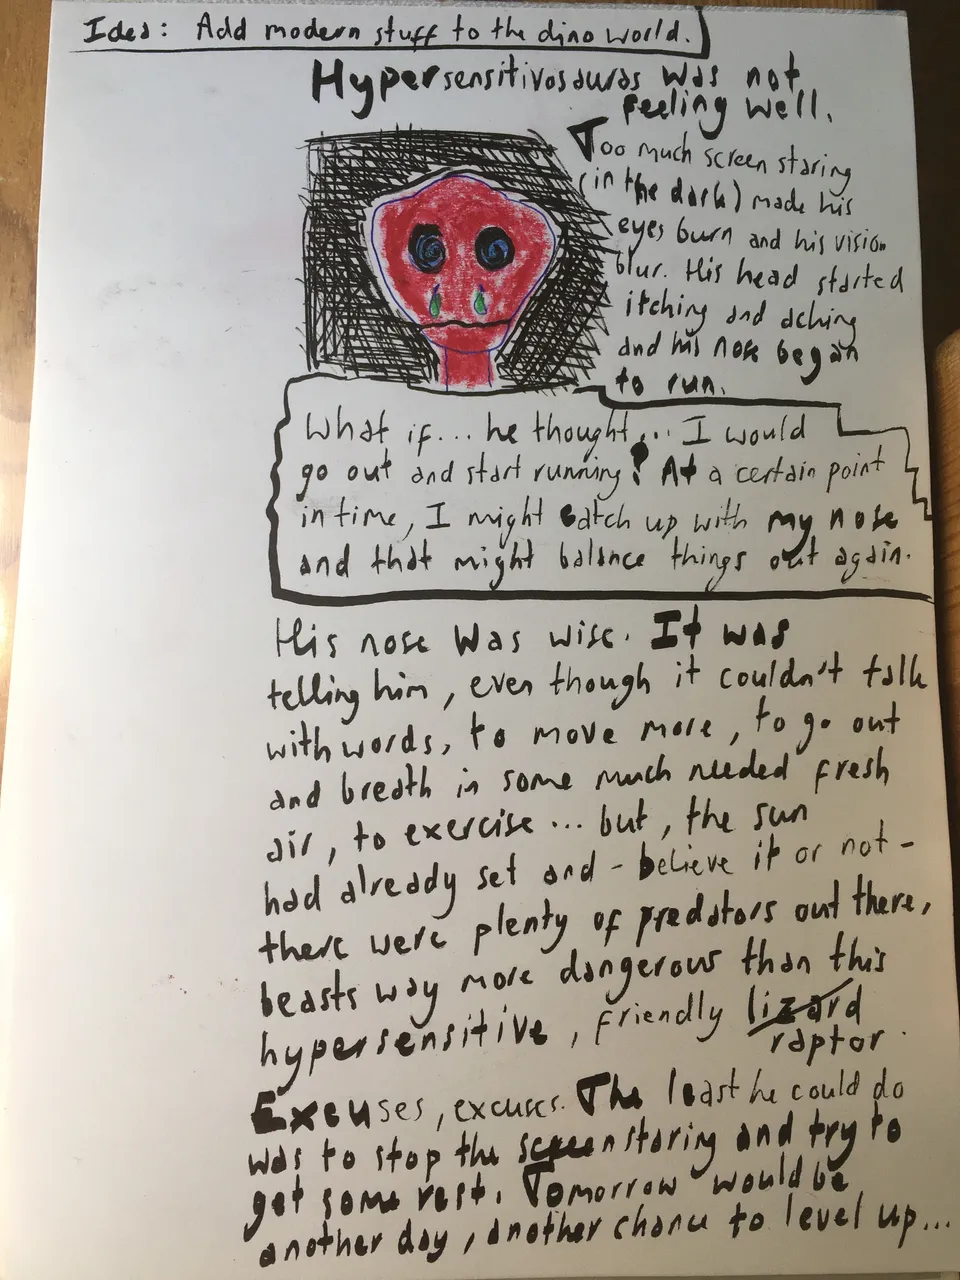 Idea: Add modern stuff to the dino world.
Hypersensitivosauras was not
feeling well.
Too much screen staring
(in the dark) made his
eyes burn and his vision
blur. His head started
itching and aching
and his nose began
to run.
What if... he thought... I would
go out and start running? At a certain point
in time, I might catch up with my nose
and that might balance things out again.
His nose was wise. It was
telling him, even though it couldn't talk
with words, to move more, to go out
and breath in some much needed fresh
air, to exercise... but, the sun
had already set and - believe it or not -
there were plenty of predators out there,
beasts way more dangerous than this
hypersensitive, friendly lizard
raptor.
Excuses, excuses. The least he could do
was to stop the screen staring and try to
get some rest. Tomorrow would be
another day, another chance to level up...